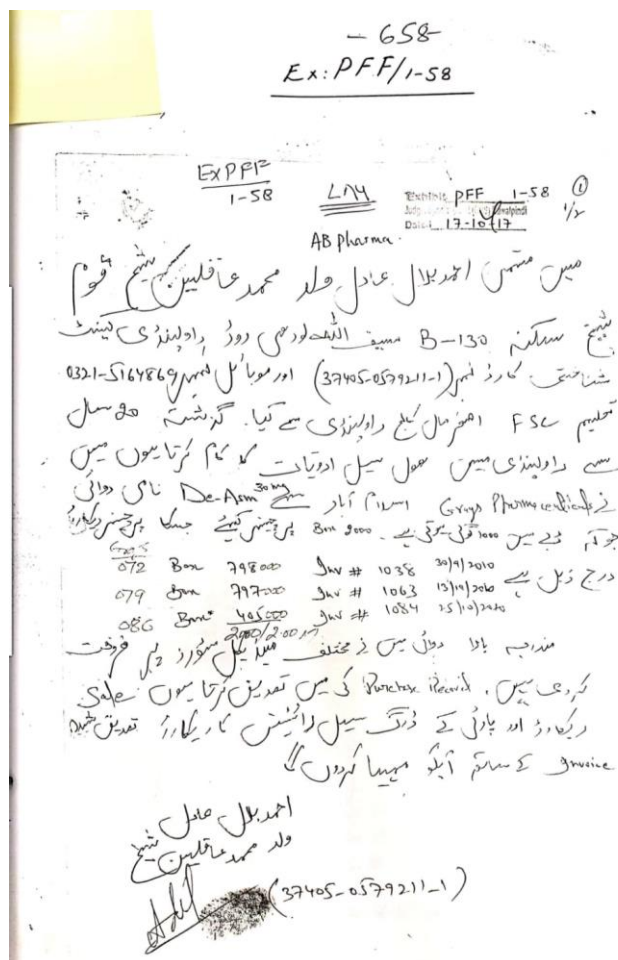 - 658-
Ex: PFF/1-58
ExPFF
1-58
Exhibit PFF 1-58
①
1/2
Dated 17-10-17
AB Pharma.
میں مسمی احمد بلال عادل ولد محمد عاقلین شیخ قوم
شیخ سکنہ B-130 سیف اللہ لودھی روڈ راولپنڈی کینٹ
شناختی کارڈ نمبر (37405-0579211-1) اور موبائل نمبر 0321-5164869
تعلیم FSc اصغر مال کالج راولپنڈی سے کیا۔ گذشتہ 20 سال
سے راولپنڈی میں ھول سیل ادویات کا کام کرتا ہوں میں
نے Grays Pharmaceuticals اسلام آباد سے De-Asm 30mg نامی دوائی
جو کہ ڈبے میں 1000 گولی ہوتی ہے۔ 2000 Box پرچیز کیئے جسکا پرچیز ریکارڈ
درج ذیل ہے
072 Box 798000 Inv # 1038 30/9/2010
079 Box 797000 Inv # 1063 13/10/2010
086 Box 405000 Inv # 1084 25/10/2010
مندرجہ بالا دوائی میں نے مختلف میڈیکل سٹورز پر فروخت
کر دی ہیں۔ Record کی میں تصدیق کرتا ہوں Sale
ریکارڈ اور پارٹی کے ڈرگ سیل لائیسنس کا ریکارڈ تصدیق شدہ
Invoice کے ساتھ آپکو مہیا کردوں گا
احمد بلال عادل شیخ
ولد محمد عاقلین شیخ
(37405-0579211-1)